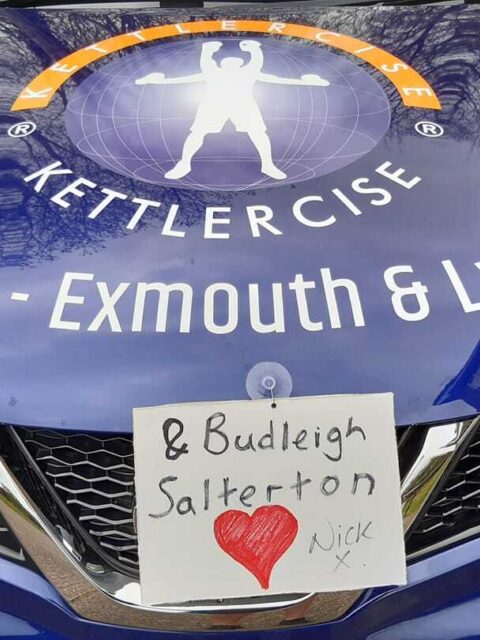 KETTLERCISE
® ®
KETTLERCISE
- Exmouth &
& Budleigh
Salterton
Nick
x